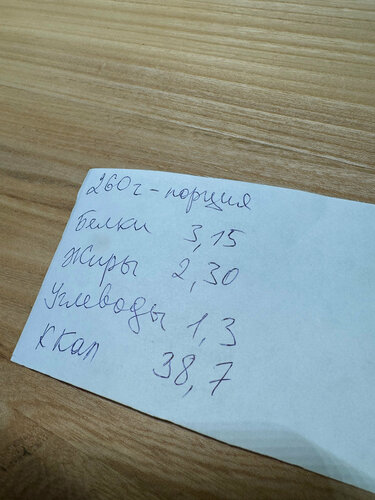 260г - порция
Белки 3,15
Жиры 2,30
Углеводы 1,3
Ккал 38,7